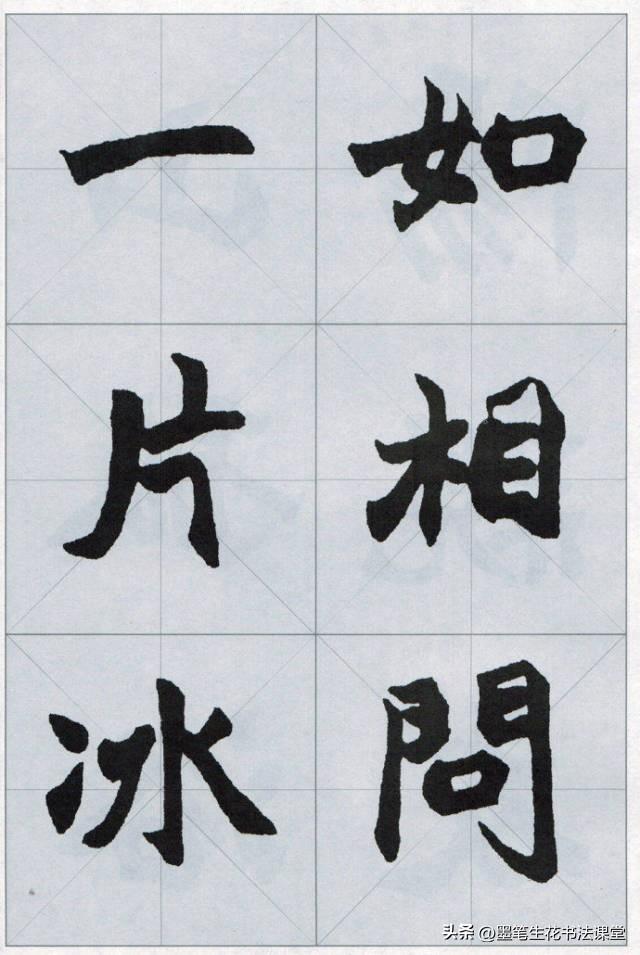 如相問
一片冰
头条 @墨笔生花书法课堂